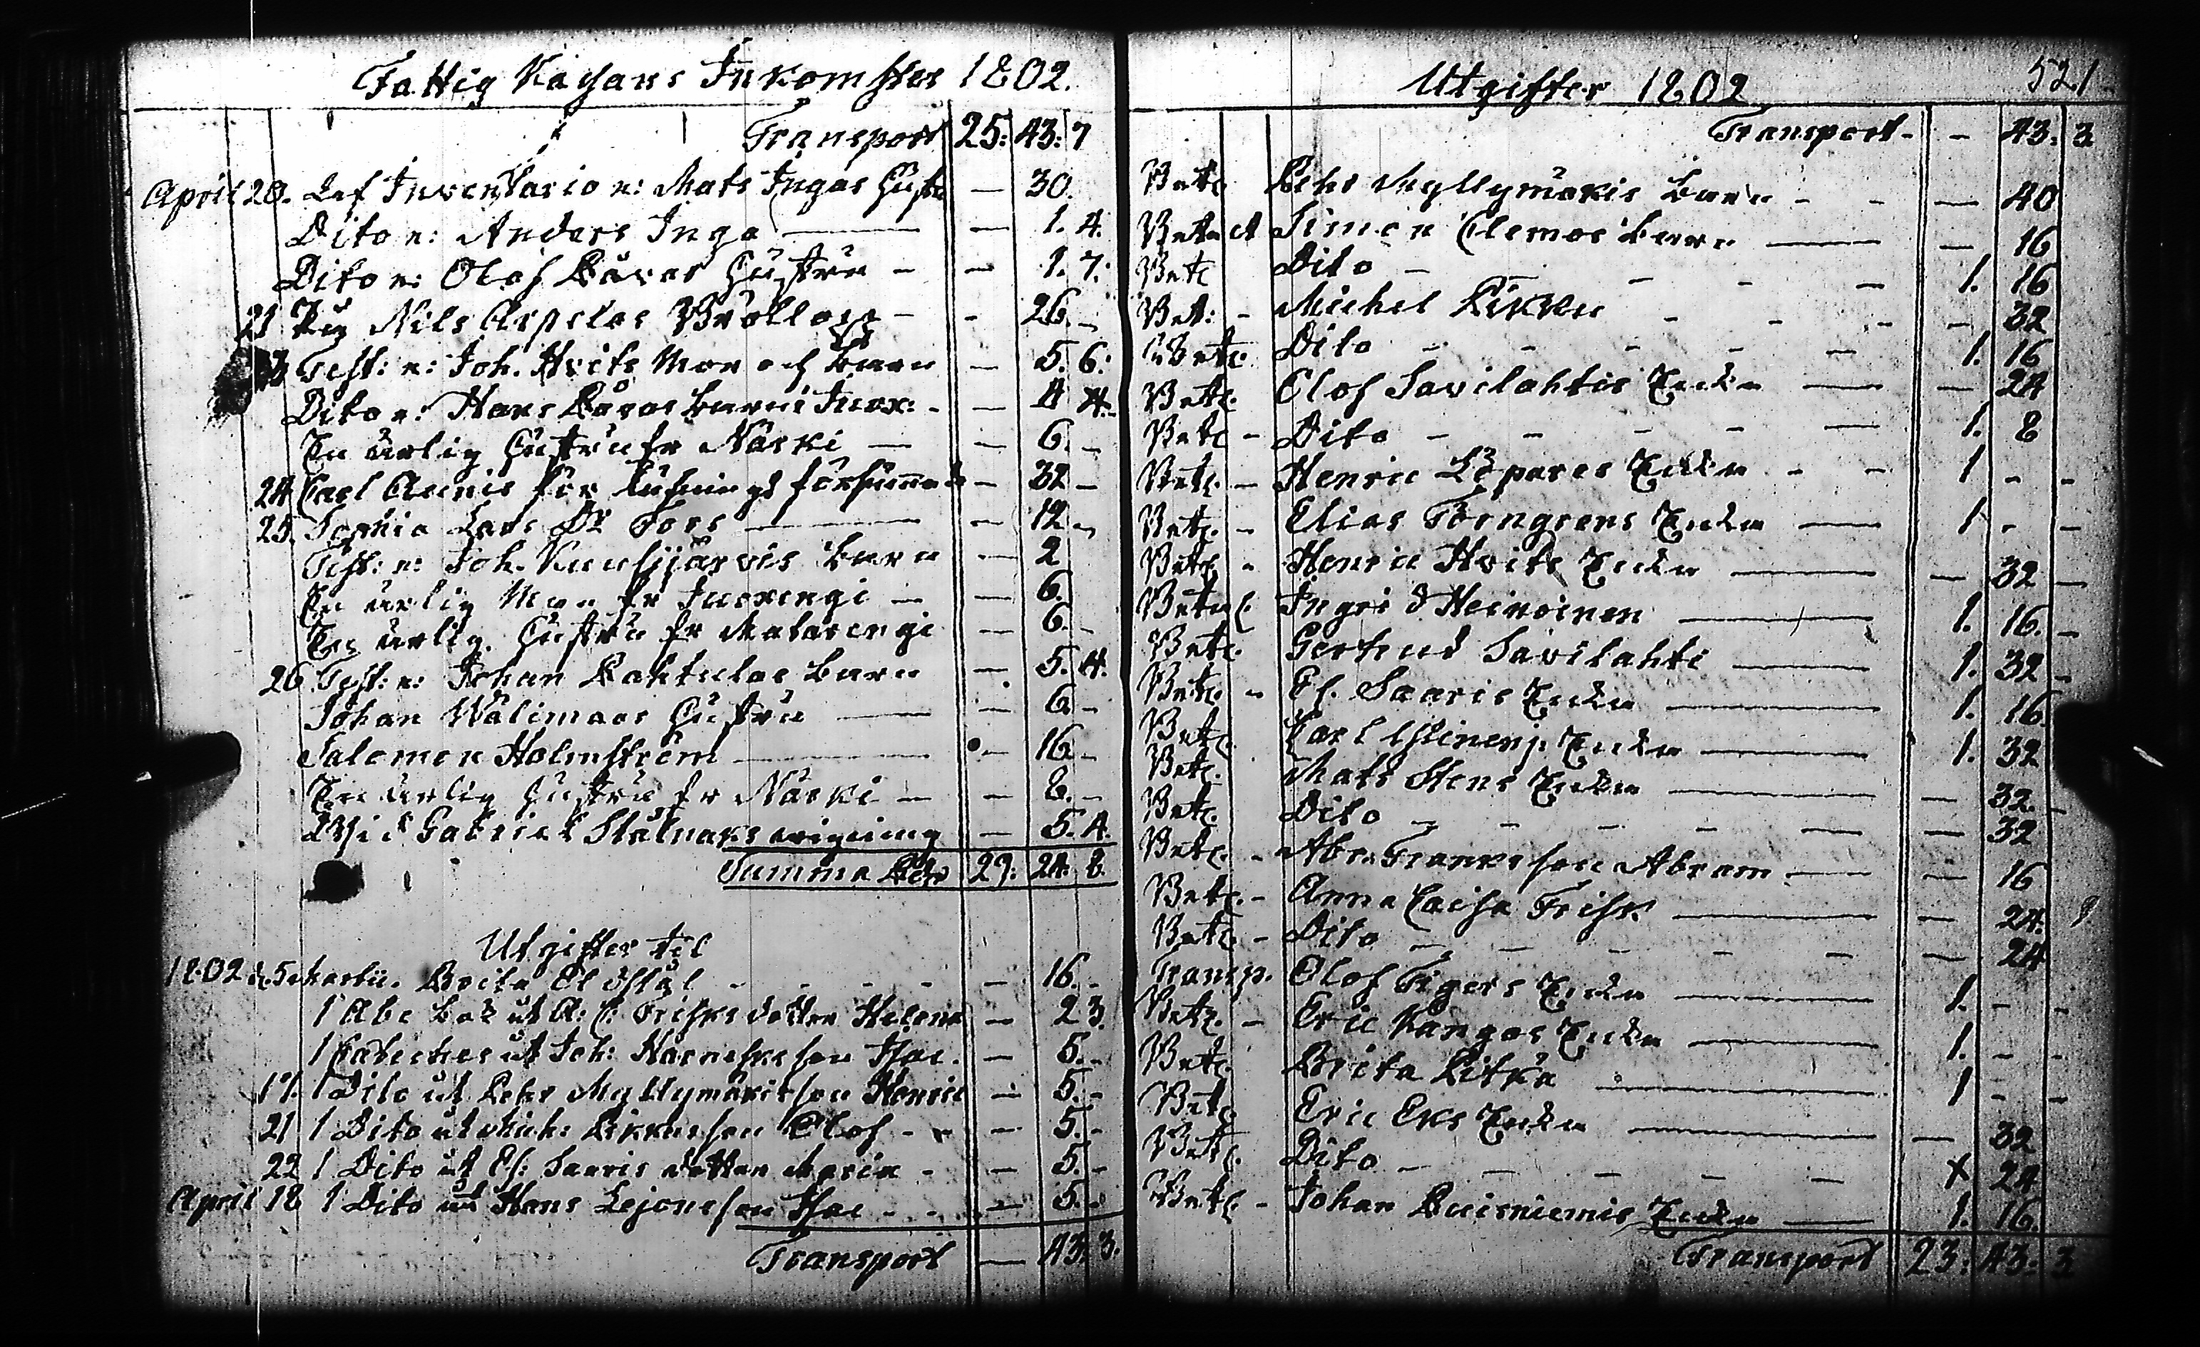 Fattig Kassans Inkomster 1802.
Transport 25: 43: 7
April 20. Lef Inventario n: Mats Ingas Hustru — 30.
Dito n: Anders Inga — — 1. 4.
Dito n: Olof Råvas Hustru — — 1. 7.
21 Nils Arpelas Bröllop — - 26. -
Test: n: Joh. Hvits Mor och barn — 5. 6.
Dito n: Hans Råvas barn i Juox: - — 4 4.
En ärlig Hustru fr Närki — — 6. -
24 Carl Aunis för — 32 -
25. Sophia Lars Dr Fors — — 12 -
Test: n: Joh. Kuusijärvis barn — 2
En ärlig Man fr Juoxengi — — 6.
En ärlig Hustru fr Matarengi — 6. -
26 Test: n: Johan Rahtulas barn — 5. 4.
Johan Wälimaas Hustru — — 6. -
Salomon Holmström — — 16. -
En ärlig Hustru fr Närki — — 8. -
Wid Gabriel Stålnaks wigning — 5. 4.
Summa Rdr 29: 24. 8.
Utgifter til
1802 d. 5 Martii. Brita — 16. -
1 Abc Bok åt A: C: Frisks dotter Helena — 2 3.
1 Cateches åt Joh: Harnesks son Isac. — 5. -
17. 1 Dito åt Pehr Myllymäkis son Henric — 5. -
21 1 Dito åt Mich: Rikkus son Olof - - — 5. -
22 1 Dito åt Er: Saaris dotter Maria - — 5. -
April 18 1 Dito åt Hans Lejons son Isac - - — 5. -
Transport — 43. 3.
Utgifter 1802
521
Transport - — 43. 3
Betr Pehr Myllymäkis barn - - — 40
Betr Simon Clemos barn — — 16
Betr Dito - - - — 1. 16
Betr - Michel Rikku - - - — 32
Betr Dito - - - — 1. 16
Betr. Olof Savilahtis Enka — — 24
Betr - Dito - - - — 1. 8
Betr. - Henric Löpares Enka - - 1 - -
Betr. - Elias Törngrens Enka — 1. - -
Betr. - Henric Hvits Enka — — 32 —
Betr. Ingrid Heinoinen — 1. 16. -
Betr. Gertrud Savilahti — 1. 32 -
Betr. - Er. Saaris Enka — 1. 16.
Betr. Carl Enka — 1. 32
Betr. Mats Stens Enka — — 32. -
Betr. Dito - - - — 32
Betr. - Abr: Franks son Abram — — 16
Betr. - Anna Caisa Frisk — — 24.
Betr. - Dito - - - — 24
Transp. Olof Tigers Enka — 1. - -
Betr. - Eric Kangas Enka — 1. - -
Betr. Brita Pitkä — 1 - -
Betr. Eric Eks Enka — — 32
Betr. Dito - - - x 24
Betr. - Johan Ruisniemis Enka — 1. 16.
Transport 23: 43. 3